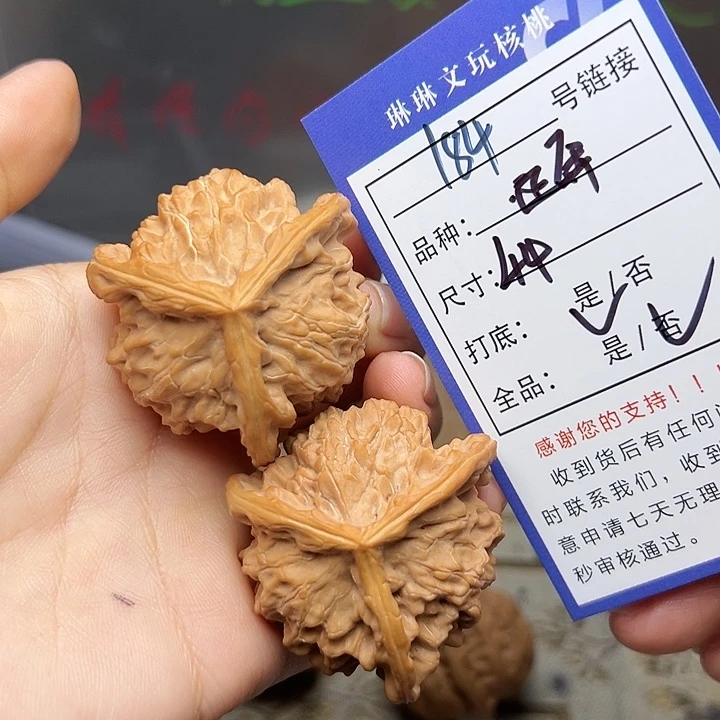 琳琳文玩核桃
184 号链接
品种：
尺寸：44
打底： 是/否
全品： 是/否
感谢您的支持！！！
收到货后有任何
时联系我们，收到
意申请七天无理
秒审核通过。